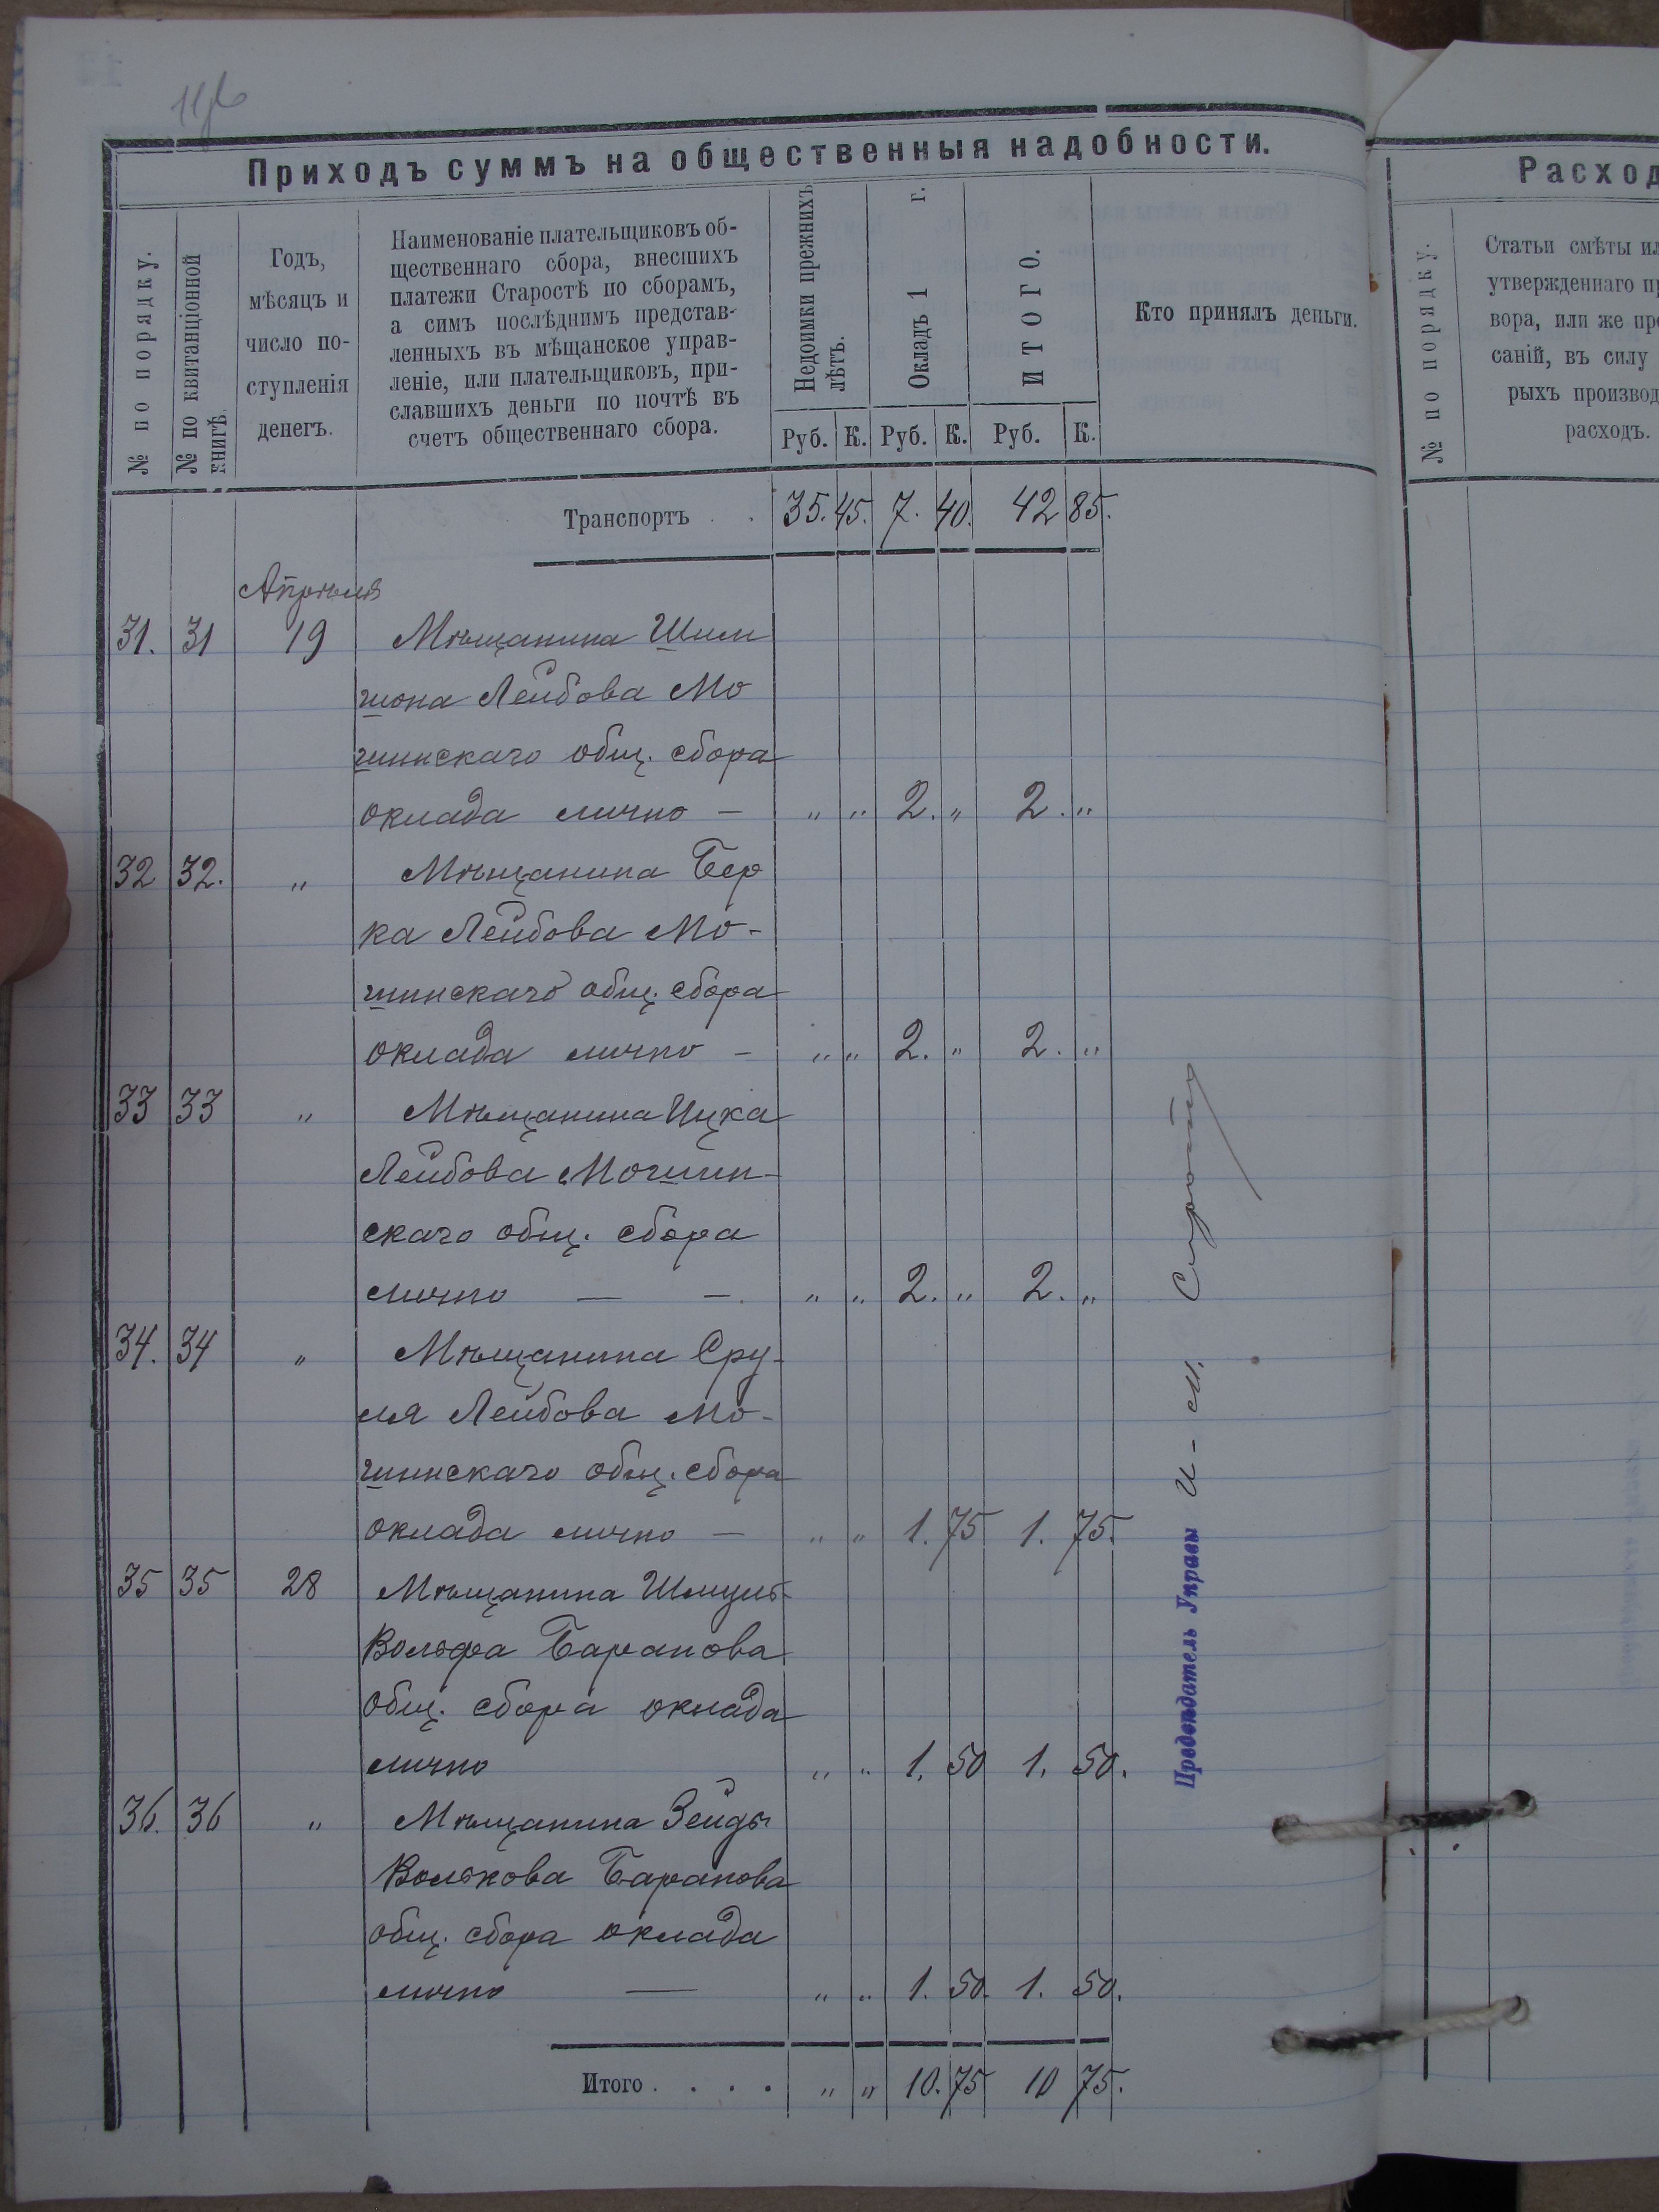 Приходъ суммъ на общественныя надобности.
№ по порядку.
№ по квитанціонной
книгѣ.
Годъ,
мѣсяцъ и
число по-
ступленія
денегъ.
Наименованіе плательщиковъ об-
щественнаго сбора, внесшихъ
платежи Старостѣ по сборамъ,
а симъ послѣднимъ представ-
ленныхъ въ мѣщанское управ-
леніе, или плательщиковъ, при-
славшихъ деньги по почтѣ въ
счетъ общественнаго сбора.
Недоимки прежнихъ
лѣтъ.
Окладъ 1 г.
ИТОГО.
Руб. К. Руб. К. Руб. К.
Кто принялъ деньги.
Транспортъ . . 35. 45. 7. 40. 42 85.
Апрѣля
31. 31 19 Мѣщанина Шим
шона Лейбова Мо
шинскаго общ. сбора
оклада лично — „ „ 2. „ 2. „
32 32. „ Мѣщанина Бер
ка Лейбова Мо-
шинскаго общ. сбора
оклада лично — „ „ 2. „ 2. „
33 33 „ Мѣщанина Ицка
Лейбова Мошин-
скаго общ. сбора
лично — —. „ „ 2. „ 2. „
34. 34 „ Мѣщанина Сру-
ля Лейбова Мо-
шинскаго общ. сбора
оклада лично — „ „ 1. 75 1. 75.
35 35 28 Мѣщанина Шмуль
Вольфа Баранова
общ. сбора оклада
лично „ „ 1. 50 1. 50.
36. 36 „ Мѣщанина
Волькова Баранова
общ. сбора оклада
лично — „ „ 1. 50. 1. 50.
Итого . . . . „ „ 10. 75 10 75.
Предсѣдатель Управы И - М.
Расход
№ по порядку.
Статьи смѣты ил
утвержденнаго пр
вора, или же пре
саній, въ силу
рыхъ производ
расходъ.